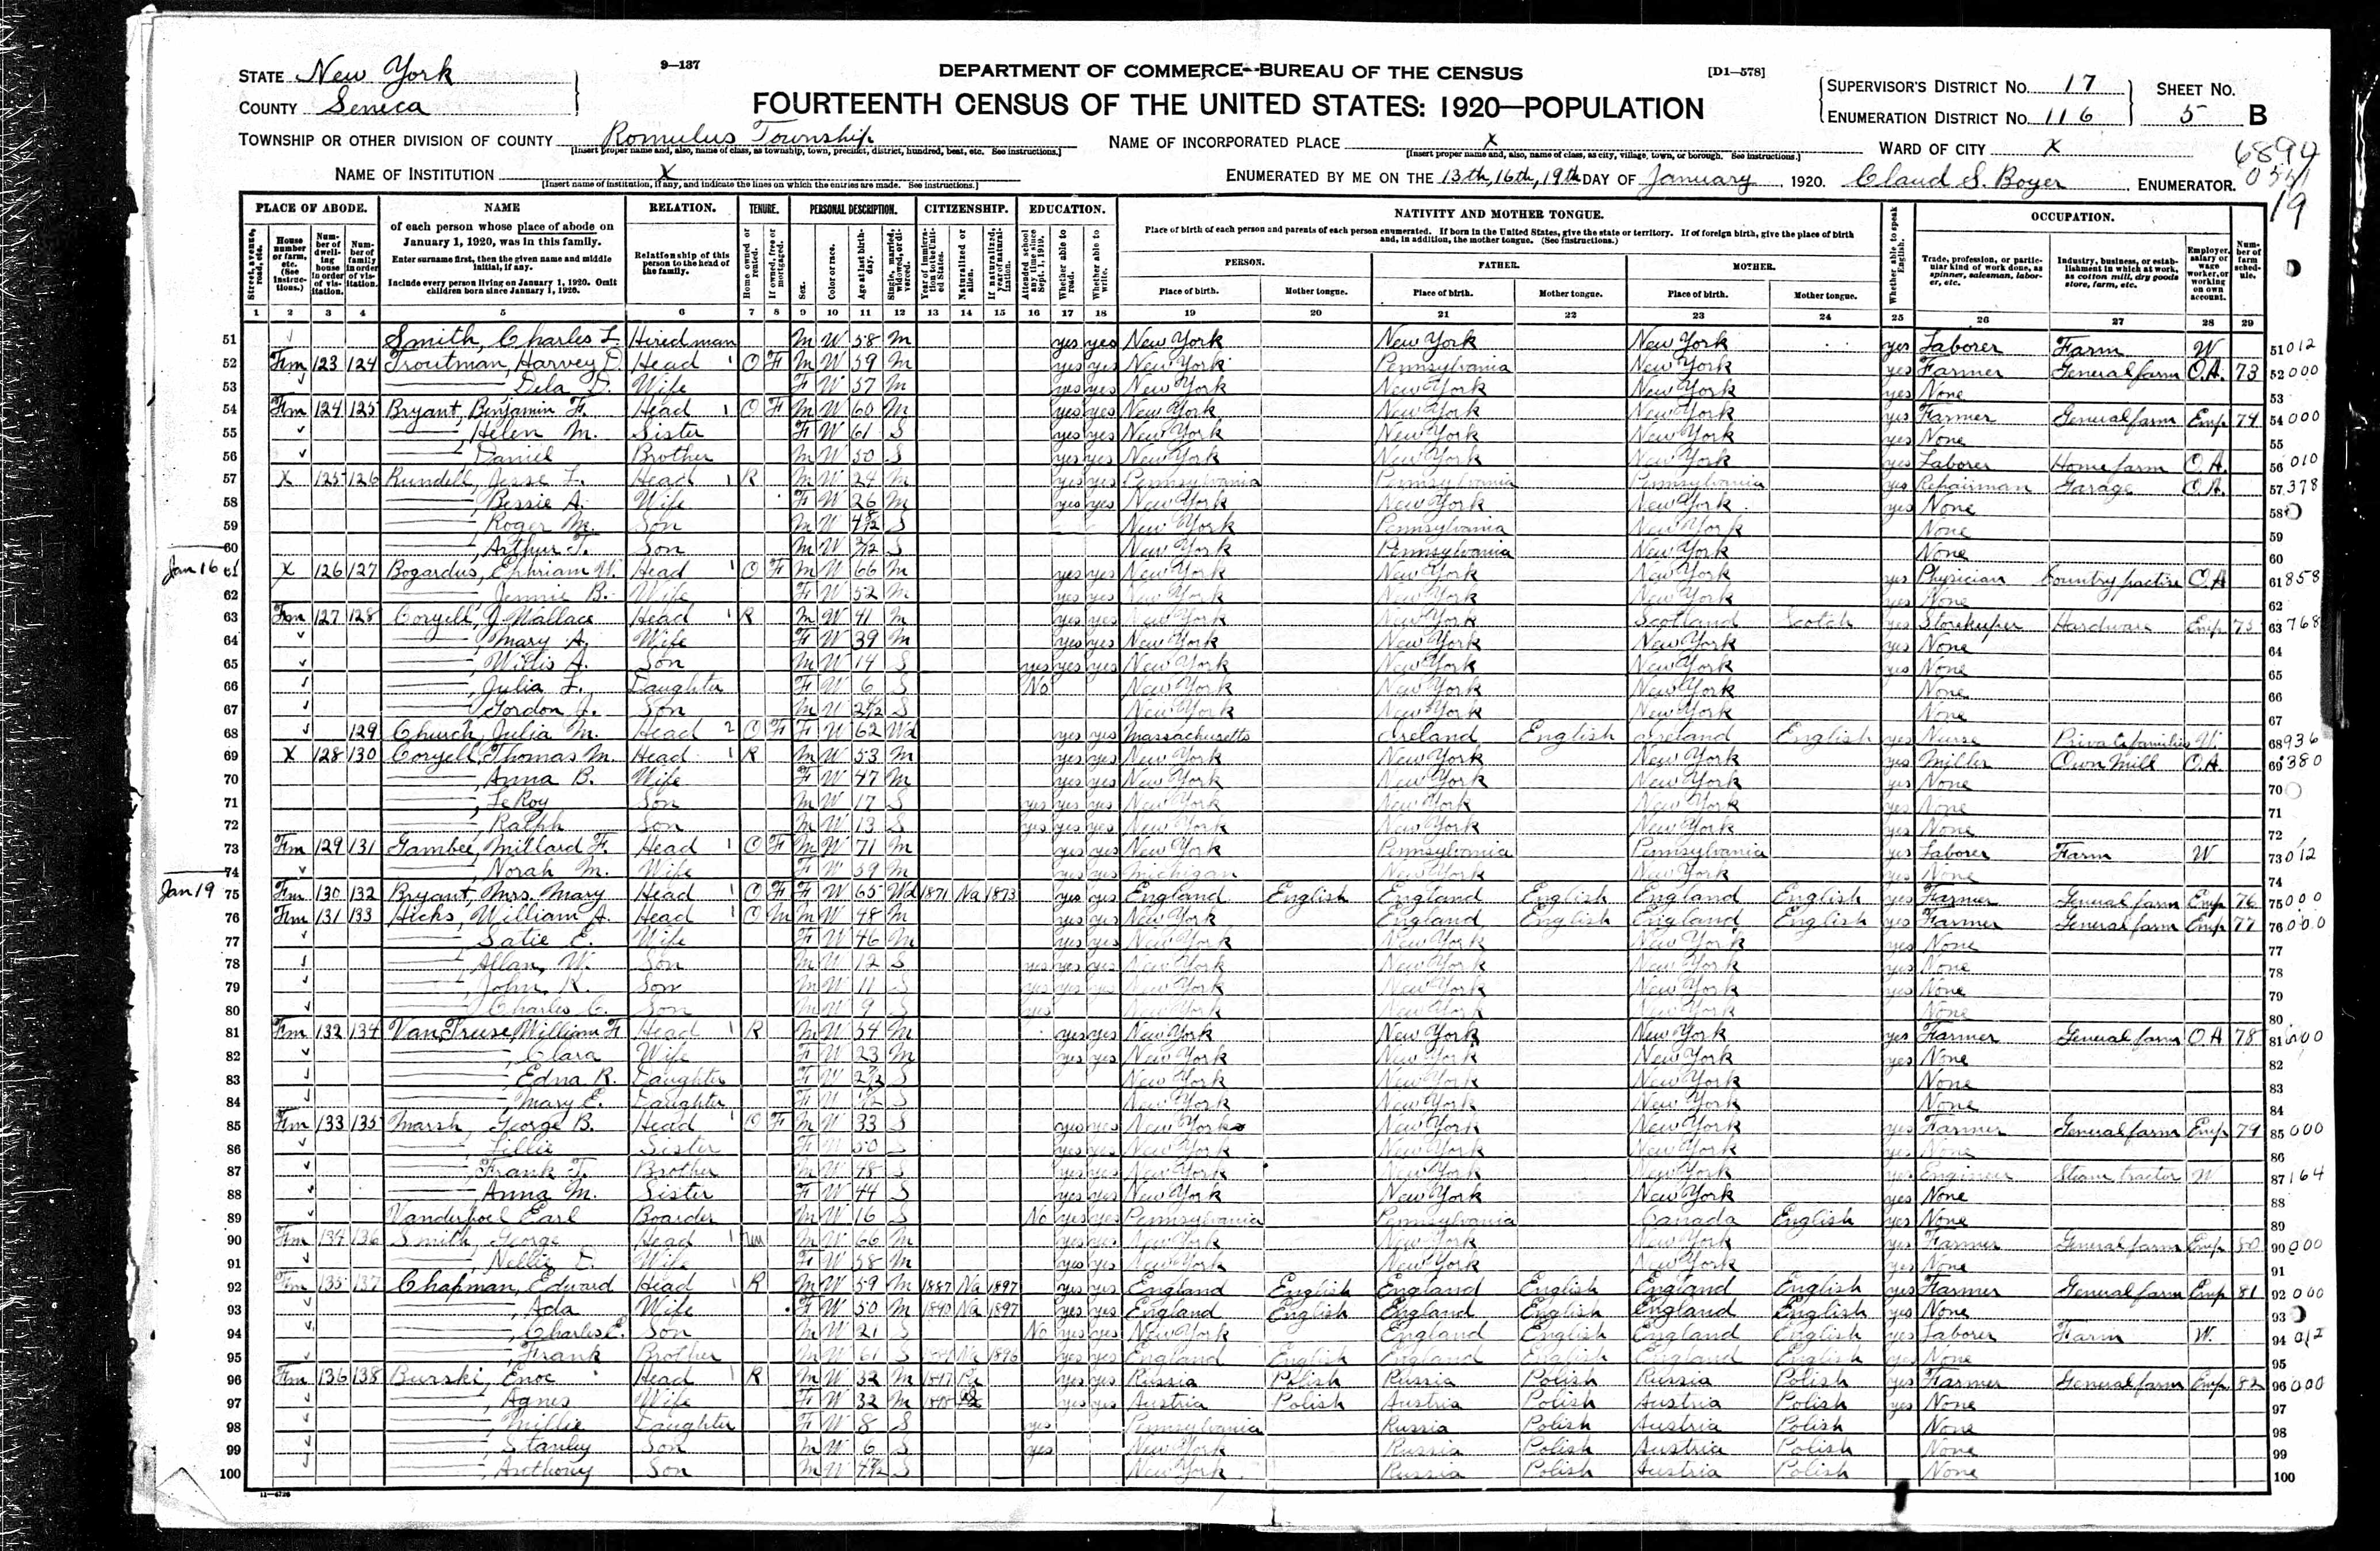 STATE New York
COUNTY Seneca
9—137
DEPARTMENT OF COMMERCE--BUREAU OF THE CENSUS
[D1—578]
FOURTEENTH CENSUS OF THE UNITED STATES: 1920—POPULATION
SUPERVISOR'S DISTRICT NO. 17
ENUMERATION DISTRICT NO. 116
SHEET NO. 5 B
TOWNSHIP OR OTHER DIVISION OF COUNTY Romulus Township
[Insert proper name and, also, name of class, as township, town, precinct, district, hundred, beat, etc. See instructions.]
NAME OF INCORPORATED PLACE X
[Insert proper name and, also, name of class, as city, village, town, or borough. See instructions.]
WARD OF CITY X
NAME OF INSTITUTION X
[Insert name of institution, if any, and indicate the lines on which the entries are made. See instructions.]
ENUMERATED BY ME ON THE 13th, 16th, 19th DAY OF January, 1920. Claud S. Boyer, ENUMERATOR.
PLACE OF ABODE. NAME RELATION. TENURE. PERSONAL DESCRIPTION. CITIZENSHIP. EDUCATION. NATIVITY AND MOTHER TONGUE. OCCUPATION.
of each person whose place of abode on January 1, 1920, was in this family.
Enter surname first, then the given name and middle initial, if any.
Include every person living on January 1, 1920. Omit children born since January 1, 1920.
Relationship of this person to the head of the family.
Place of birth of each person and parents of each person enumerated. If born in the United States, give the state or territory. If of foreign birth, give the place of birth and, in addition, the mother tongue. (See instructions.)
PERSON. FATHER. MOTHER.
Place of birth. Mother tongue. Place of birth. Mother tongue. Place of birth. Mother tongue.
1 2 3 4 5 6 7 8 9 10 11 12 13 14 15 16 17 18 19 20 21 22 23 24 25 26 27 28 29
51 Smith, Charles L. Hired man M W 58 M yes yes New York New York New York yes Laborer Farm W 51 012
52 Fm 123 124 Troutman, Harvey D. Head 1 O F M W 59 M yes yes New York Pennsylvania New York yes Farmer General farm O.A. 73 52 000
53 Dela D. Wife F W 57 M yes yes New York New York New York yes None 53
54 Fm 124 125 Bryant, Benjamin F. Head 1 O F M W 60 M yes yes New York New York New York yes Farmer General farm Emp 74 54 000
55 Helen M. Sister F W 61 S yes yes New York New York New York yes None 55
56 Daniel Brother M W 50 S yes yes New York New York New York yes Laborer Home farm O.A. 56 010
57 X 125 126 Rundell, Jesse L. Head 1 R M W 24 M yes yes Pennsylvania Pennsylvania Pennsylvania yes Repairman Garage O.A. 57 378
58 Bessie A. Wife F W 26 M yes yes New York New York New York yes None 58
59 Roger M. Son M W S New York Pennsylvania New York None 59
60 Arthur T. Son M W S New York Pennsylvania New York None 60
Jan 16 61 X 126 127 Bogardus, Ephriam W. Head 1 O F M W 66 M yes yes New York New York New York yes Physician Country practise O.A. 61 858
62 Jennie B. Wife F W 52 M yes yes New York New York New York yes None 62
63 Fm 127 128 Coryell, J Wallace Head 1 R M W 41 M yes yes New York New York Scotland Scotch yes Storekeeper Hardware Emp 75 63 768
64 Mary A. Wife F W 39 M yes yes New York New York New York yes None 64
65 Willis A. Son M W 14 S yes yes yes New York New York New York yes None 65
66 Julia L. Daughter F W 6 S No New York New York New York None 66
67 Gordon J. Son M W S New York New York New York None 67
68 129 Church, Julia M. Head 2 O F F W 62 Wd yes yes Massachusetts Ireland English Ireland English yes Nurse Private families W. 68 936
69 X 128 130 Coryell, Thomas M. Head 1 R M W 53 M yes yes New York New York New York yes Miller Own Mill O.A. 69 380
70 Anna B. Wife F W 47 M yes yes New York New York New York yes None 70
71 LeRoy Son M W 17 S yes yes yes New York New York New York yes None 71
72 Ralph Son M W 13 S yes yes yes New York New York New York yes None 72
73 Fm 129 131 Gambee, Millard F. Head 1 O F M W 71 M yes yes New York Pennsylvania Pennsylvania yes Laborer Farm W 73 012
74 Norah M. Wife F W 59 M yes yes Michigan New York New York yes None 74
Jan 19 75 Fm 130 132 Bryant, Mrs. Mary Head 1 O F F W 65 Wd 1871 Na 1873 yes yes England English England English England English yes Farmer General farm Emp 76 75 000
76 Fm 131 133 Hicks, William A. Head 1 O M M W 48 M yes yes New York England English England English yes Farmer General farm Emp 77 76 000
77 Satie E. Wife F W 46 M yes yes New York New York New York yes None 77
78 Allan, W. Son M W 12 S yes yes yes New York New York New York yes None 78
79 John, K. Son M W 11 S yes yes yes New York New York New York yes None 79
80 Charles C. Son M W 9 S yes New York New York New York None 80
81 Fm 132 134 William F. Head 1 R M W 54 M yes yes New York New York New York yes Farmer General farm O.A 78 81 000
82 Clara Wife F W 23 M yes yes New York New York New York yes None 82
83 Edna R. Daughter F W S New York New York New York None 83
84 Mary E. Daughter F W S New York New York New York None 84
85 Fm 133 135 Marsh, George B. Head 1 O F M W 33 S yes yes New York New York New York yes Farmer General farm Emp 79 85 000
86 Lillie Sister F W 50 S yes yes New York New York New York yes None 86
87 Frank T. Brother M W 48 S yes yes New York New York New York yes Engineer Steam tractor W 87 164
88 Anna M. Sister F W 44 S yes yes New York New York New York yes None 88
89 Vanderpoel Earl Boarder M W 16 S No yes yes Pennsylvania Pennsylvania Canada English yes None 89
90 Fm 134 136 Smith, George Head 1 M W 66 M yes yes New York New York New York yes Farmer General farm Emp 80 90 000
91 Nellie D. Wife F W 58 M yes yes New York New York New York yes None 91
92 Fm 135 137 Chapman, Edward Head 1 R M W 59 M 1887 Na 1897 yes yes England English England English England English yes Farmer General farm Emp 81 92 000
93 Ada Wife F W 50 M 1890 Na 1897 yes yes England English England English England English yes None 93
94 Charles E. Son M W 21 S No yes yes New York England English England English yes Laborer Farm W. 94 012
95 Frank Brother M W 61 S Na 1896 yes yes England English England English England English yes None 95
96 Fm 136 138 Burski, Enoc Head 1 R M W 32 M yes yes Russia Polish Russia Polish Russia Polish yes Farmer General farm Emp 82 96 000
97 Agnes Wife F W 32 M yes yes Austria Polish Austria Polish Austria Polish yes None 97
98 Millie Daughter F W 8 S yes Pennsylvania Russia Polish Austria Polish None 98
99 Stanley Son M W 6 S yes New York Russia Polish Austria Polish None 99
100 Anthony Son M W S New York Russia Polish Austria Polish None 100
11—6726